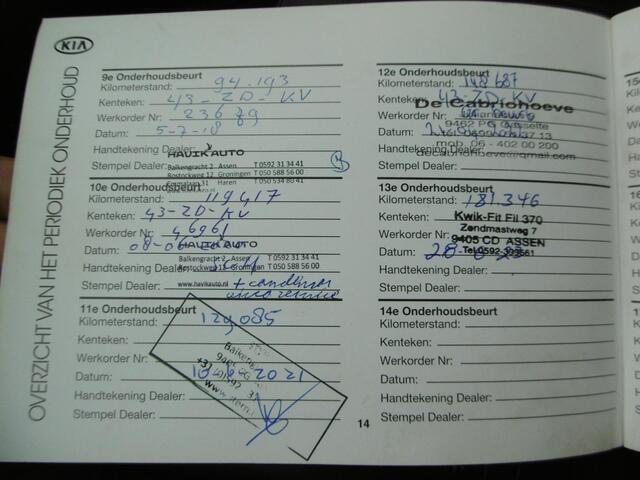 KIA
OVERZICHT VAN HET PERIODIEK ONDERHOUD
9e Onderhoudsbeurt
Kilometerstand: 94.193
Kenteken: 43-ZD-KV
Werkorder Nr: 23679
Datum: 5-7-18
Handtekening Dealer:
HAVIK AUTO
Stempel Dealer:
Balkengracht 2 Assen T 0592 31 34 41
Rostockweg 12 Groningen T 050 588 56 00
Haren T 050 534 80 41
10e Onderhoudsbeurt
Kilometerstand: 119417
Kenteken: 43-ZD-KV
Werkorder Nr: 46961
HAVIK AUTO
Datum: 08-06
Balkengracht 2 Assen T 0592 31 34 41
Handtekening Dealer:
Rostockweg 12 Groningen T 050 588 56 00
Stempel Dealer: www.havikauto.nl
11e Onderhoudsbeurt
Kilometerstand: 129085
Kenteken:
Werkorder Nr:
Datum: 2021
Handtekening Dealer:
Stempel Dealer:
12e Onderhoudsbeurt
Kilometerstand: 148687
Kenteken: 43-ZD-KV
De Cabriohoeve
Werkorder Nr:
Datum:
mob. 06 - 402 00 200
Handtekening Dealer:
decabriohoeve@gmail.com
Stempel Dealer:
13e Onderhoudsbeurt
Kilometerstand: 181.346
Kenteken: Kwik-Fit Fil 370
Zendmastweg 7
Werkorder Nr: 9405 CD ASSEN
Datum:
Handtekening Dealer:
Stempel Dealer:
14e Onderhoudsbeurt
Kilometerstand:
Kenteken:
Werkorder Nr:
Datum:
Handtekening Dealer:
Stempel Dealer:
14